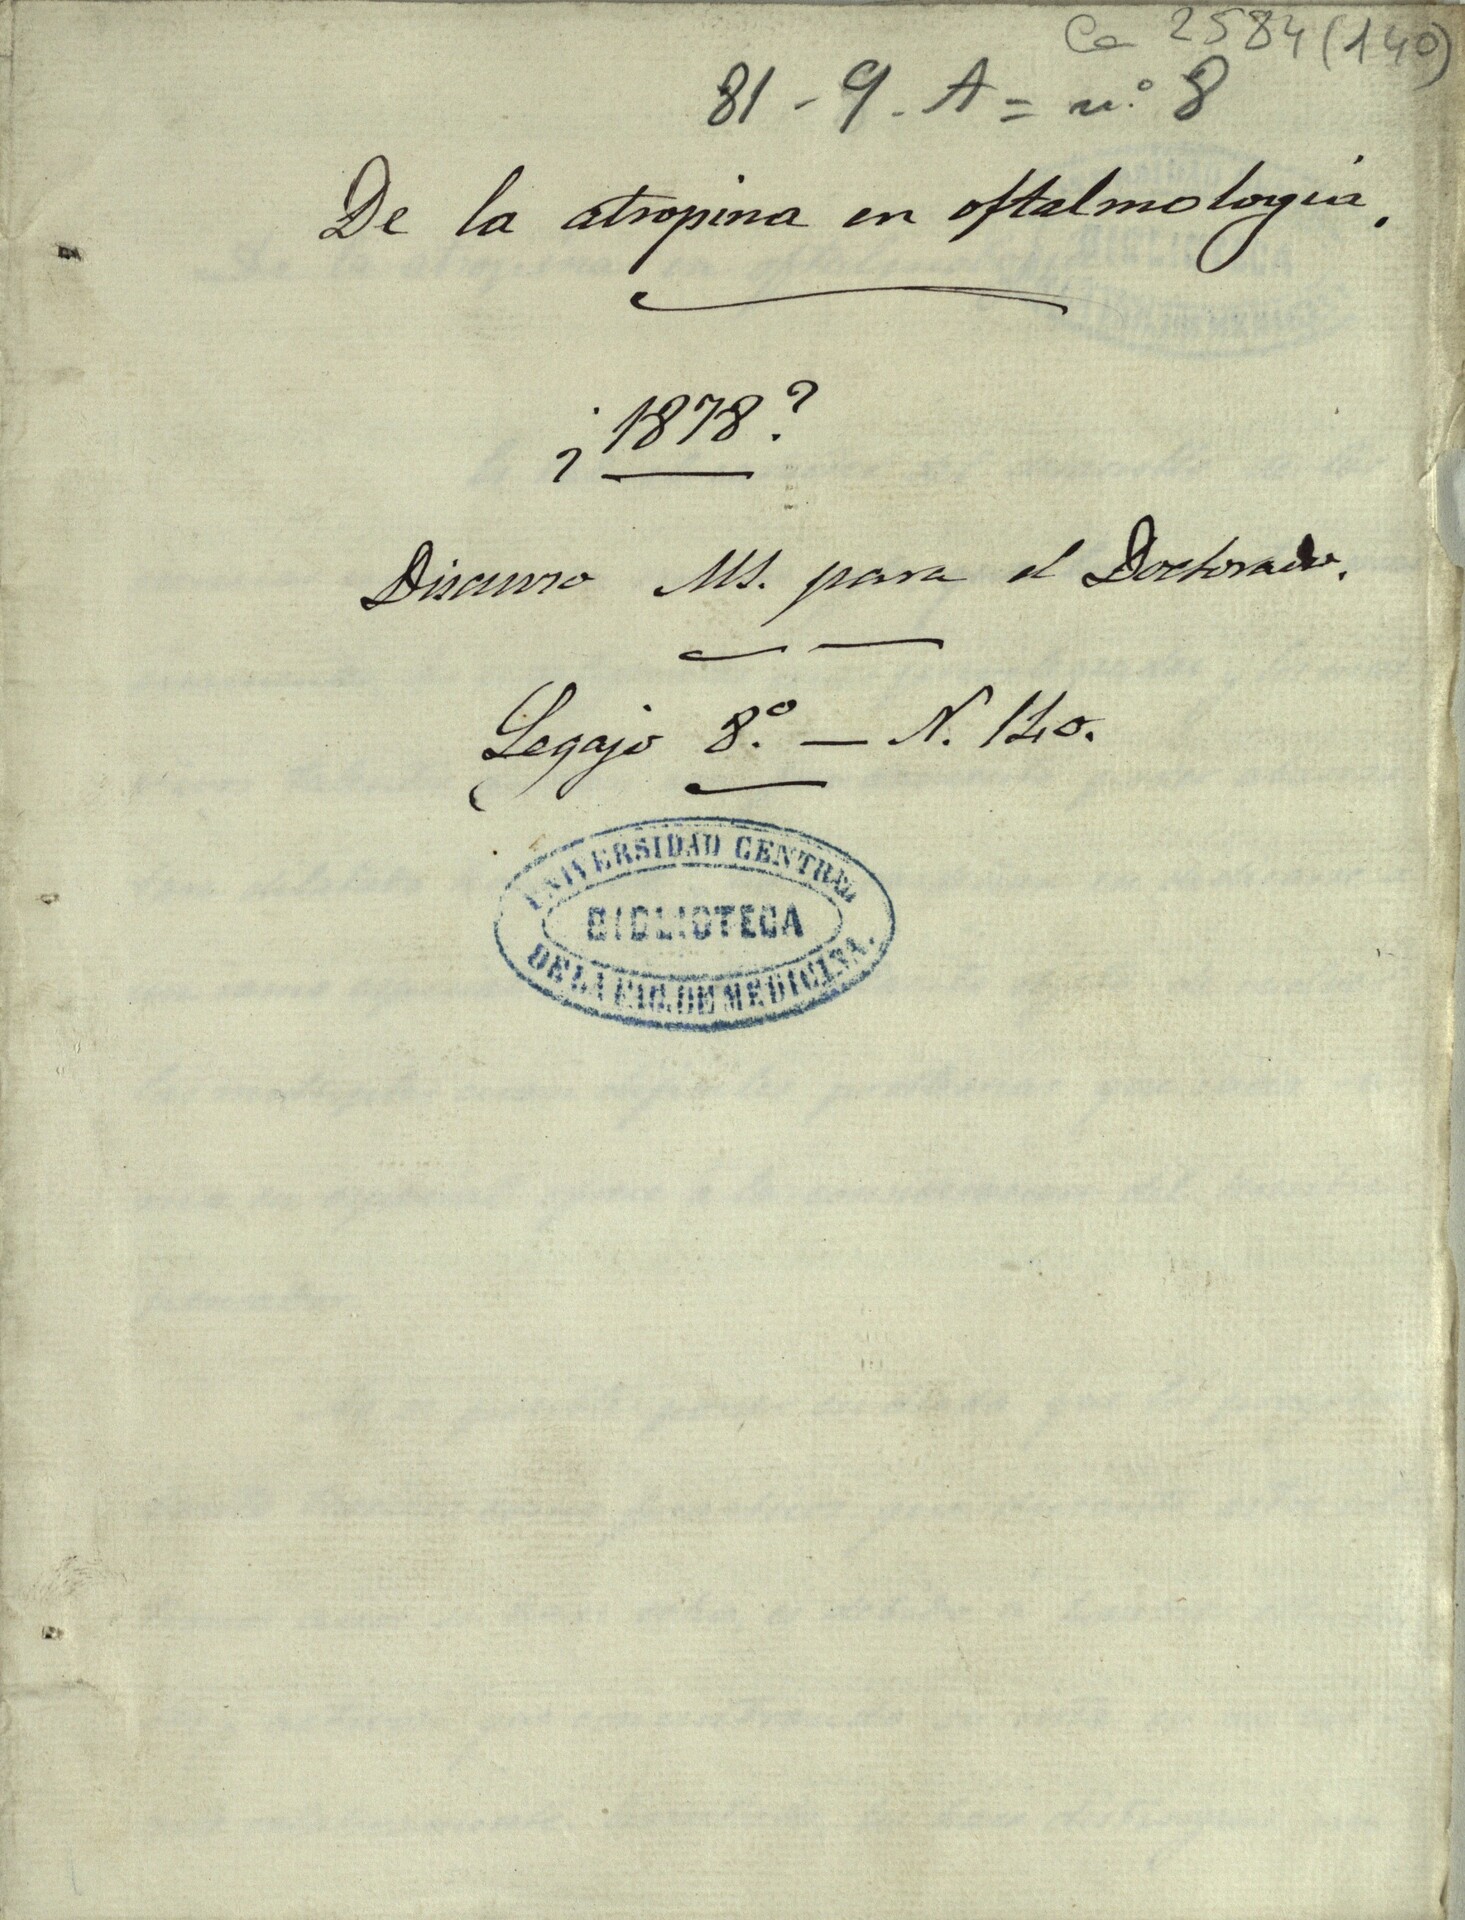 Ca 2584 (140)
81-9.A = n.º 8
De la atropina en oftalmologia.
¿1878?
Discurso MS. para el Doctorado.
Legajo 8.º — N. 140.
UNIVERSIDAD CENTRAL
BIBLIOTECA
DE LA FAC. DE MEDICINA.